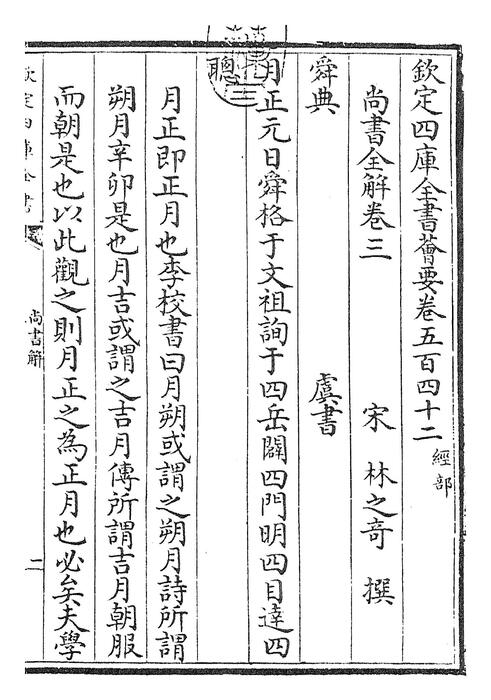 欽定四庫全書薈要卷五百四十二 經部
尚書全解卷三
宋 林之奇 撰
舜典
虞書
月正元日舜格于文祖詢于四岳闢四門明四目達四
聰
月正即正月也李校書曰月朔或謂之朔月詩所謂
朔月辛卯是也月吉或謂之吉月傳所謂吉月朝服
而朝是也以此觀之則月正之為正月也必矣夫學
欽定四庫全書
尚書解
二